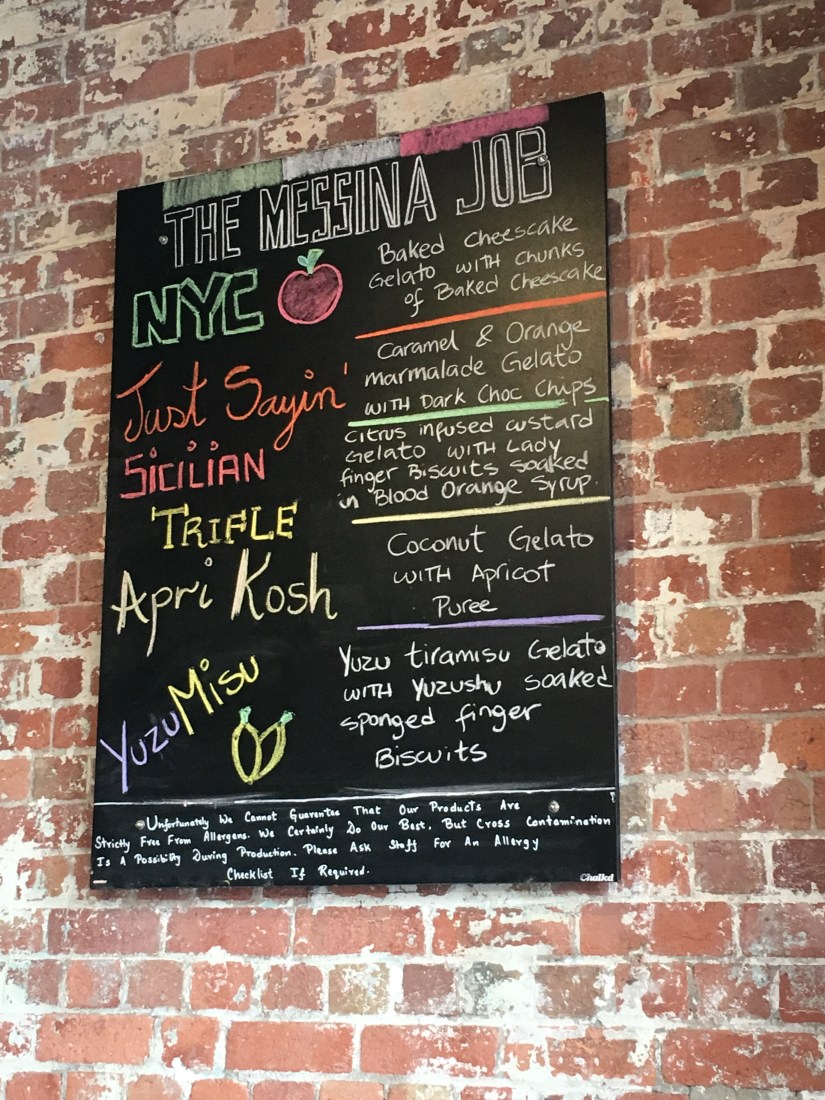 THE MESSINA JOB
NYC
Baked Cheescake
Gelato WITH Chunks
of Baked Cheescake
Just Sayin'
Caramel & Orange
marmalade Gelato
WITH Dark Choc Chips
SICILIAN
TRIFLE
Citrus infused custard
Gelato WITH Lady
finger Biscuits soaked
in Blood Orange Syrup.
Apri Kosh
Coconut Gelato
WITH Apricot
Puree
YuzuMisu
Yuzu tiramisu Gelato
WITH Yuzushu soaked
sponged finger
Biscuits
Unfortunately We Cannot Guarantee That Our Products Are
Strictly Free From Allergens. We Certainly Do Our Best, But Cross Contamination
Is A Possibility During Production. Please Ask Staff For An Allergy
Checklist If Required.
Chalkd